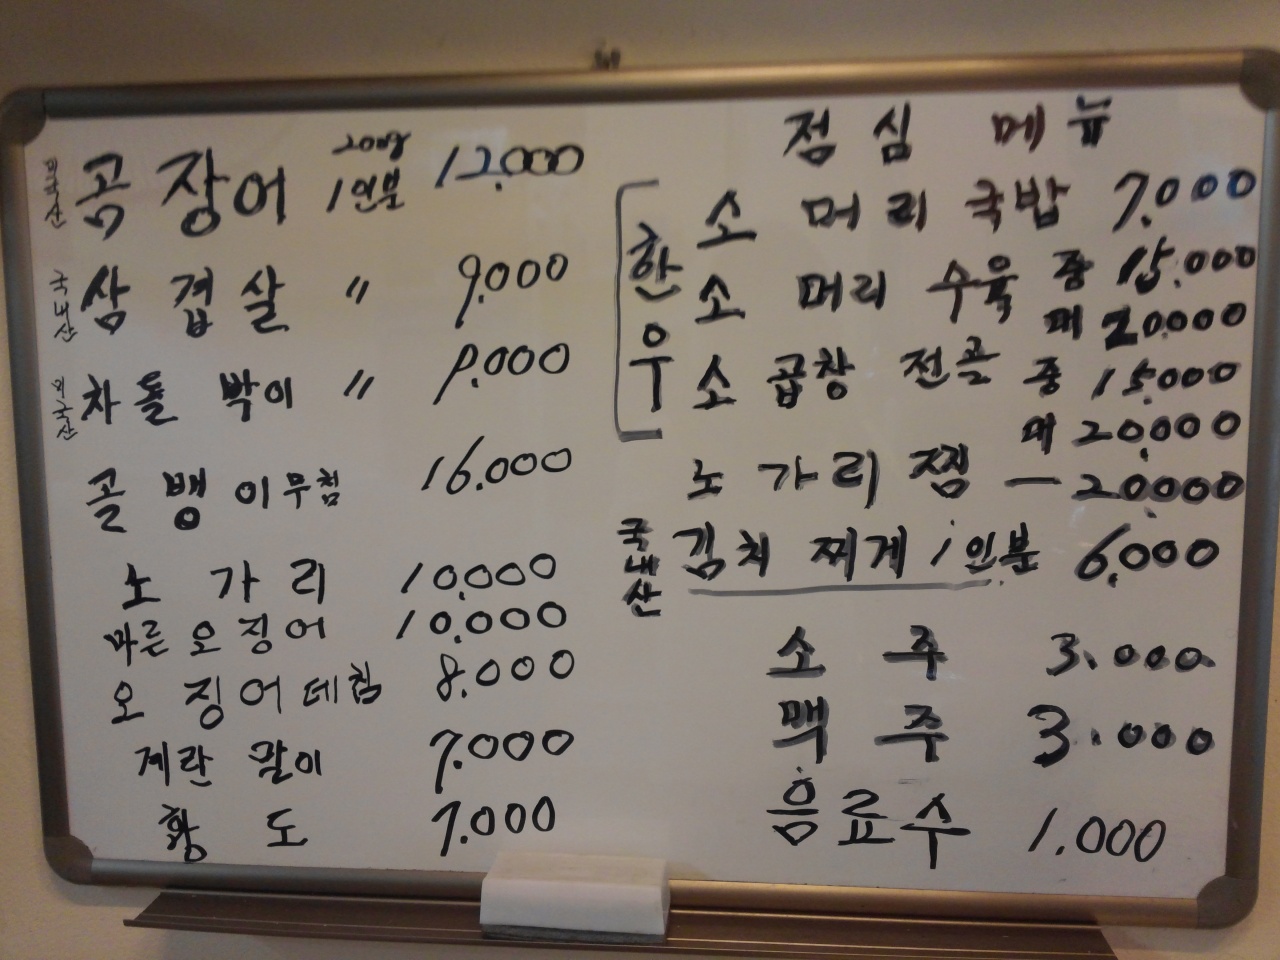 외국산 곰장어 200g 1인분 12.000
국내산 삼겹살 〃 9.000
외국산 차돌박이 〃 9.000
골뱅이무침 16.000
노가리 10.000
마른오징어 10.000
오징어데침 8.000
계란말이 7.000
황도 7.000
점심 메뉴
한우
소머리국밥 7.000
소머리 수육 중 15.000
대 20.000
소곱창 전골 중 15.000
대 20.000
노가리찜 — 20.000
국내산 김치찌게 1인분 6.000
소주 3.000
맥주 3.000
음료수 1.000